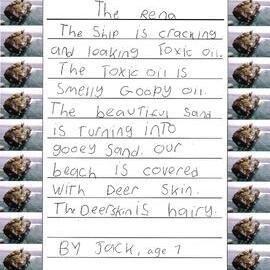 The Rena
The Ship is cracking
and loaking Toxic oil.
The Toxic oil is
Smelly Goopy oil.
The beautiful Sand
is Turning into
gooey Sand. our
beach is covered
with Deer Skin.
The Deerskin is hairy.
BY Jack, age 7